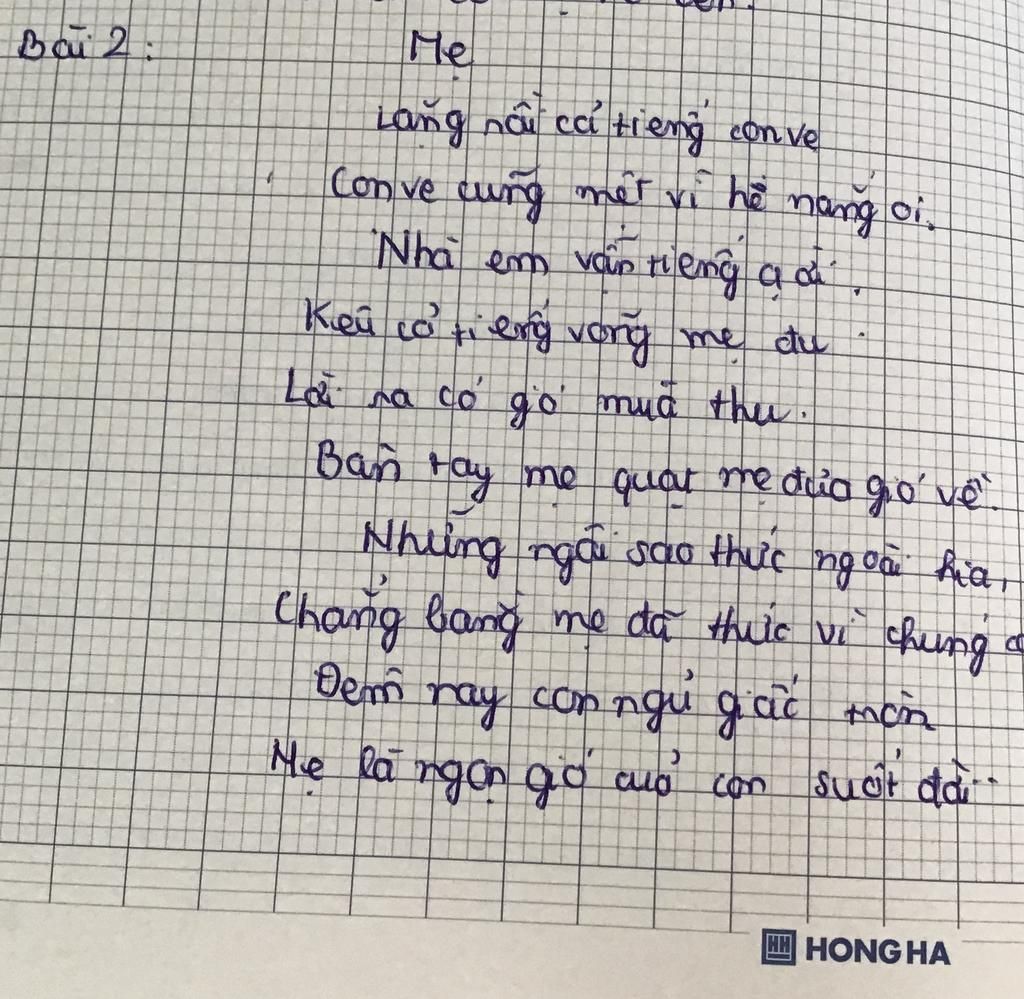 Bài 2: Mẹ
Lặng rồi cả tiếng con ve
Con ve cũng mệt vì hè nắng oi.
Nhà em vẫn tiếng ạ ời.
Kẽo cà tiếng võng mẹ
Lời ra có gió mùa thu.
Bàn tay mẹ quạt mẹ đưa gió về.
Những ngôi sao thức ngoài kia,
Chẳng bằng mẹ đã thức vì chúng
Đêm nay con ngủ giấc tròn
Mẹ là ngọn gió của con suốt đời..
HH HONG HA